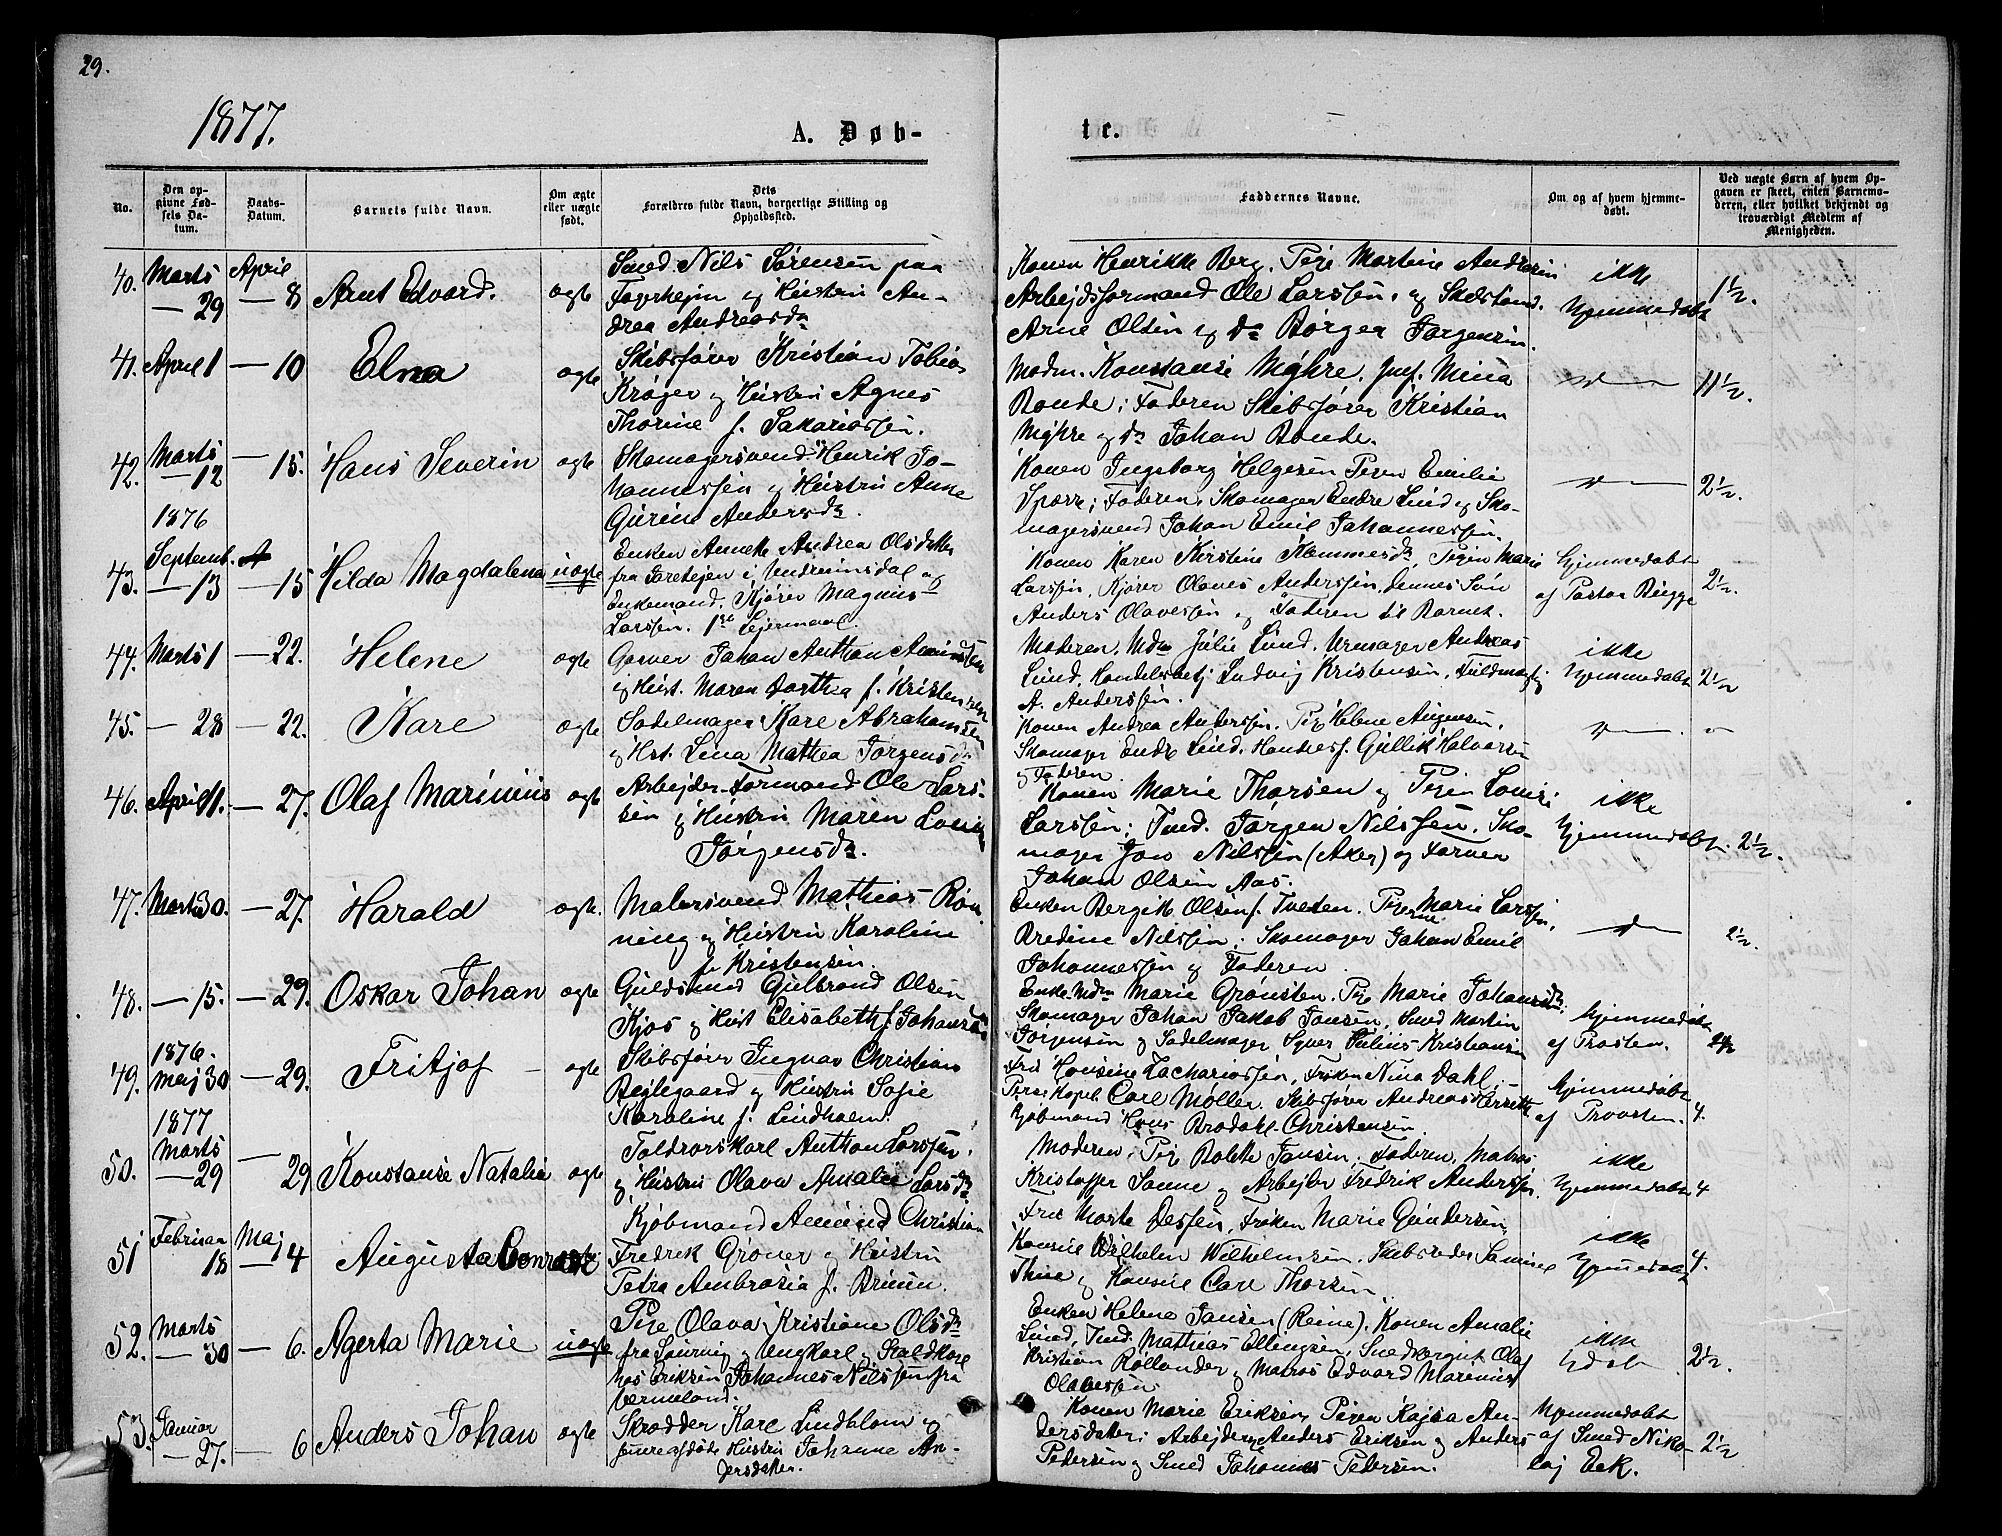 29.
1877.
A. Døb-
te.
No.
Den op-
givne Fød-
sels Da-
tum.
Daabs-
Datum.
Barnets fulde Navn.
Om ægte
eller uægte
født.
Dets
Forældres fulde Navn, borgerlige Stilling og
Opholdssted.
Faddernes Navne.
Om og af hvem hjemme-
døbt.
Ved uægte Børn af hvem Op-
gaven er skeet, enten Barnemo-
deren, eller hvilket bekjendt og
troværdigt Medlem af
Menigheden.
40. Marts
— 29
April
— 8
Arnt Edvard.
ægte
Smed Nils Sørensen paa
Fagerhejm og Hustru An-
drea Andreasdr
Konen Henrikke Berg, Pige Martine Andersen
Arbejdsformand Ole Larssen, og
Arne Olsen og do Børger Jørgensen.
ikke
hjemmedøbt
1½.
41. April 1
— 10
Elna
ægte
Skibsfører Kristian Tobias
Krøger og Hustru Agnes
Thorine f. Sakariassen.
Madm. Konstanse Myhre, Jmf. Mina
Bonde; Faderen Skibsfører Kristian
Myhre og do Johan Bonde.
— d —
11½.
42. Marts
— 12
— 15.
Hans Severin
ægte
Skomagersvend Henrik Jo-
hannessen og Hustru Anne
Gurine Andersdr.
Konen Ingeborg Helgesen Pigen Emilie
Sparre; Faderen, Skomager Endre Lund og Sko-
magersvend Johan Emil Johannessen.
— d —
2½.
43. 1876
Septemb.
— 13
— 15
Hilda Magdalena
uægte
Enken Annette Andrea Olsdatter
fra i Undrumsdal og
Enkemand, Kjører Magnus
Larssen. 1ste Lejermaal.
Konen Karen Kirstine Hannesdr, Pigen Marie
Larssen, Kjører Olaves Anderssen, dennes Søn
Anders Olavessen og Faderen til Barnet.
hjemmedøbt
af Pastor Bugge
2½.
44. Marts 1
— 22.
Helene
ægte
Garver Johan Anthon Amundsen
og Hust. Maren Dorthea f. Kristensen
Moderen, Mdm Julie Lund, Urmager Andreas
Lund, Handelsbetj. Ludvig Kristensen, Fuldmægtig
A. Anderssen.
ikke
hjemmedøbt
2½
45. — 28
— 22.
Kare
ægte
Sadelmager Kare Abrahamsen
og Hst. Lina Mathea Jørgensdr
Konen Andrea Anderssen, Pige Helene Augensen,
Skomager Endre Lund, Handelsf. Gullik Halvorsen
og Faderen.
— d —
46. April 11.
— 27.
Olaf Marinius
ægte
Arbejder-Formand Ole Lars-
sen og Hustru Maren Lovise
Jørgensdr.
Konen Marie Thorsen og Pigen Lovise
Larssen; Tmd. Jørgen Nilssen, Sko-
mager Jow Nilssen (Aker) og Farver
Johan Olsen Aas.
ikke
hjemmedøbt.
2½.
47. Marts 30.
— 27.
Harald
ægte.
Malersvend Mathias Røn-
ning og Hustru Karoline
f. Kristensen.
Enken Bergite Olsen f. Tveten, Pigerne Marie Larssen,
Bredine Nilssen, Skomager Johan Emil
Johannessen og Faderen.
— d —
2½.
48. — 15.
— 29.
Oskar Johan
ægte
Guldsmed Gulbrand Olsen
Kjøs og Hust Elisabeth f. Johansen
Enke Mdm Marie Grønsten, Pige Marie Johansdr.
Skomager Johan Jakob Jansen, Smed Martin
Jørgensen og Sadelmager Syver Julius Kristiansen
hjemmedøbt
af Provsten.
2½
49. 1876.
Maj 30
— 29.
Fritjof
ægte
Skibsfører Ingvar Christian
Bejlegaard og Hustru Sofie
Karoline f. Lindholm.
Fru Konsul Zachariassen, Frøken Nina Dahl,
Pers. Kapel. Carl Møller, Skibsfører Andreas
Kjøbmand Hans Brodahl-Christensen.
hjemmedøbt
af Provsten.
4.
50. 1877
Marts
— 29
— 29
Konstanse Natalie
ægte
Toldrorskarl Anthon Larssen,
og Hustru Olava Amalie Larsdr
Moderen, Pige Bolette Jansen, Faderen, Matros
Kristoffer Sanne og Arbejder Fredrik Anderssen.
ikke
hjemmedøbt
4
51 Februar
18
Maj
— 4
Augusta
ægte
Kjøbmand Amund Christian
Fredrik Grøner og Hustru
Petra Ambrosia f. Bruun.
Fru Marte Jessen, Frøken Marie Gundersen
Konsul Wilhelm Wilhelmsen, Skibsreder Samuel
Thue og Konsul Carl Thorsen.
ikke
hjemmedøbt
4.
52. Marts
— 30
— 6.
Agerta Marie
uægte
Pige Olava Kristiane Olsdr
fra og Ungkarl og
hos Eriksen Johannes Nilssen fra
Vermeland.
Enken Helene Jansen (Reine), Konen Amalie
Lund, Tmd. Mathias Ellingsen, Smedsvend Olaf
Kristian Rollander og Matros Edvard Marinius
Olavessen
ikke
hdøbt
2½.
53. Januar
— 27.
— 6
Anders Johan
ægte
Skrædder Karl Lindblom og
forhen afdøde Hustru Johanne An-
dersdatter.
Konen Marie Eriksen, Pigen Kajsa An-
dersdatter; Arbejderne Anders Eriksen og Anders
Pedersen og Smed Johannes Pedersen.
hjemmedøbt
af Smed Niko-
laj Eek.
2½